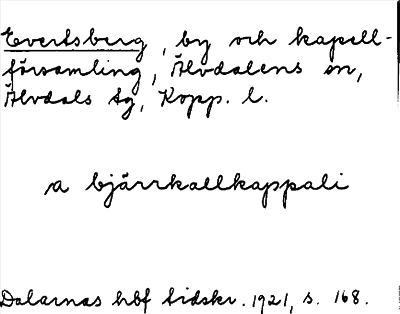 Evertsberg, by och kapell-
församling, Älvdalens sn,
Älvdals tg, Kopp. l.
a bjärrkallkappali
Dalarnas hbf tidskr. 1921, s. 168.